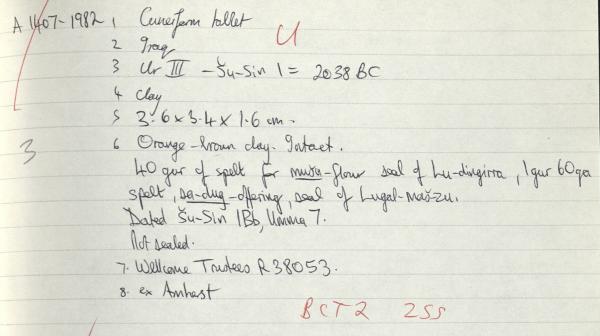 A 1407-1982 1 Cuneiform tablet
U
2 Iraq
3 Ur III - Šu-Sin 1 = 2038 BC
4 Clay
5 3.6 x 3.4 x 1.6 cm.
3
6 Orange-brown clay. Intact.
40 gur of spelt for -flour seal of Lu-dingirra, 1 gur 60 qa
spelt, sa-dug-offering, seal of Lugal-mašzu.
Dated Šu-Sin 1Bb, Umma 7.
Not sealed.
7. Wellcome Trustees R38053.
8. ex Amhast
BCT2 255